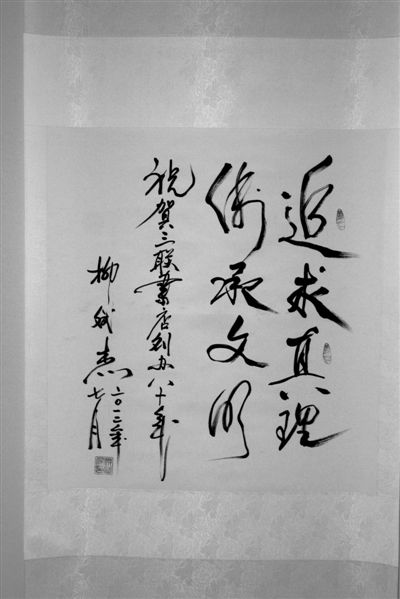 追求真理
傳承文明
祝賀三联書店创办八十年
柳斌杰
二〇一二年
七月